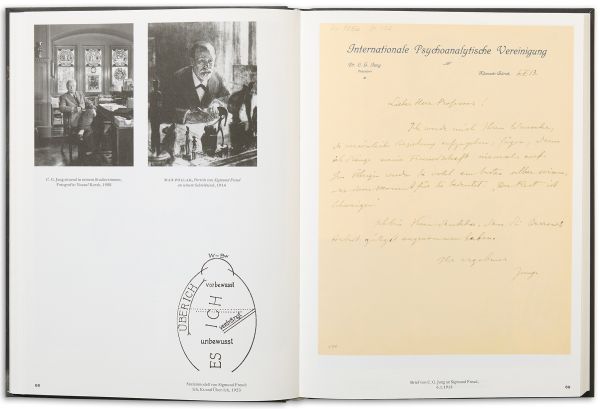 C. G. Jung sitzend in seinem Studierzimmer,
Fotografie: Yousuf Karsh, 1958
MAX POLLAK, Porträt von Sigmund Freud
an seinem Schreibtisch, 1914
W-Bw
vorbewusst
ÜBERICH
ICH
verdrängt
unbewusst
ES
Instanzmodell von Sigmund Freud:
Ich, Es und Über-Ich, 1923
68
Internationale Psychoanalytische Vereinigung
Dr. C. G. Jung
Präsident
Küsnach-Zürich
Lieber Herr Professor!
Ich werde mich Ihrem Wunsche,
die persönliche Beziehung aufzugeben, fügen, denn
ich dränge meine Freundschaft niemals auf.
Im Übrigen werden Sie wohl am besten selber wissen,
was dieser Moment für Sie bedeutet. „Der Rest ist
Schweigen"
Ihr ergebener
Jung
Brief von C. G. Jung an Sigmund Freud,
6.1.1913
69